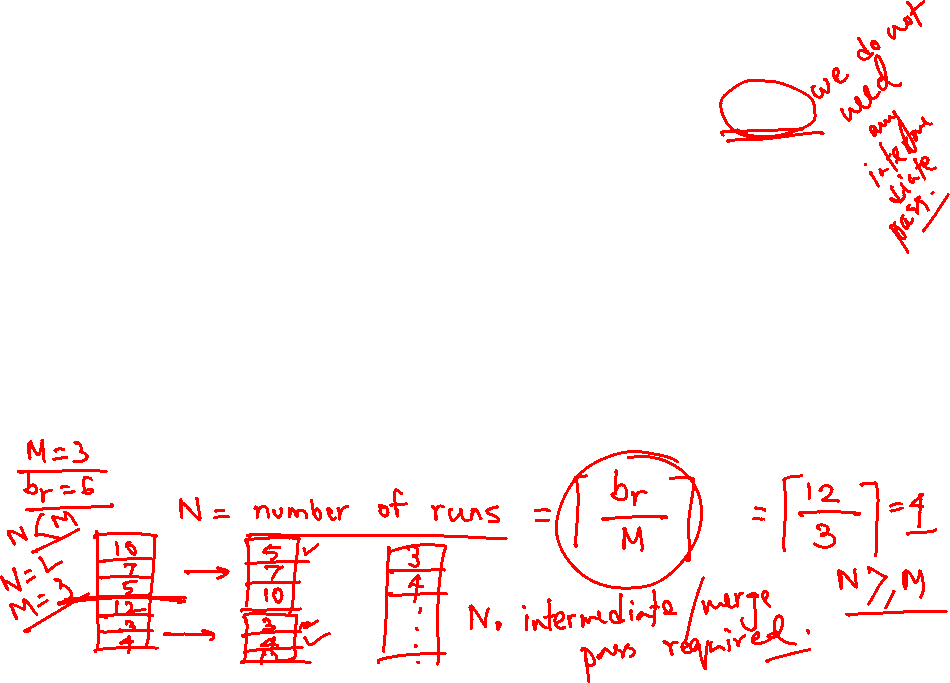 we do not
need
any
interme
diate
pass.
M=3
br=6
N<M
N=2
M=3
N = number of runs = ⌈br/M⌉ = ⌈12/3⌉ = 4
N ≥ M
10
7
5
12
3
4
→
5 ✓
7
10
→
3
4 ✓
12
3
4
⋮
N. intermediate/merge
pass required.